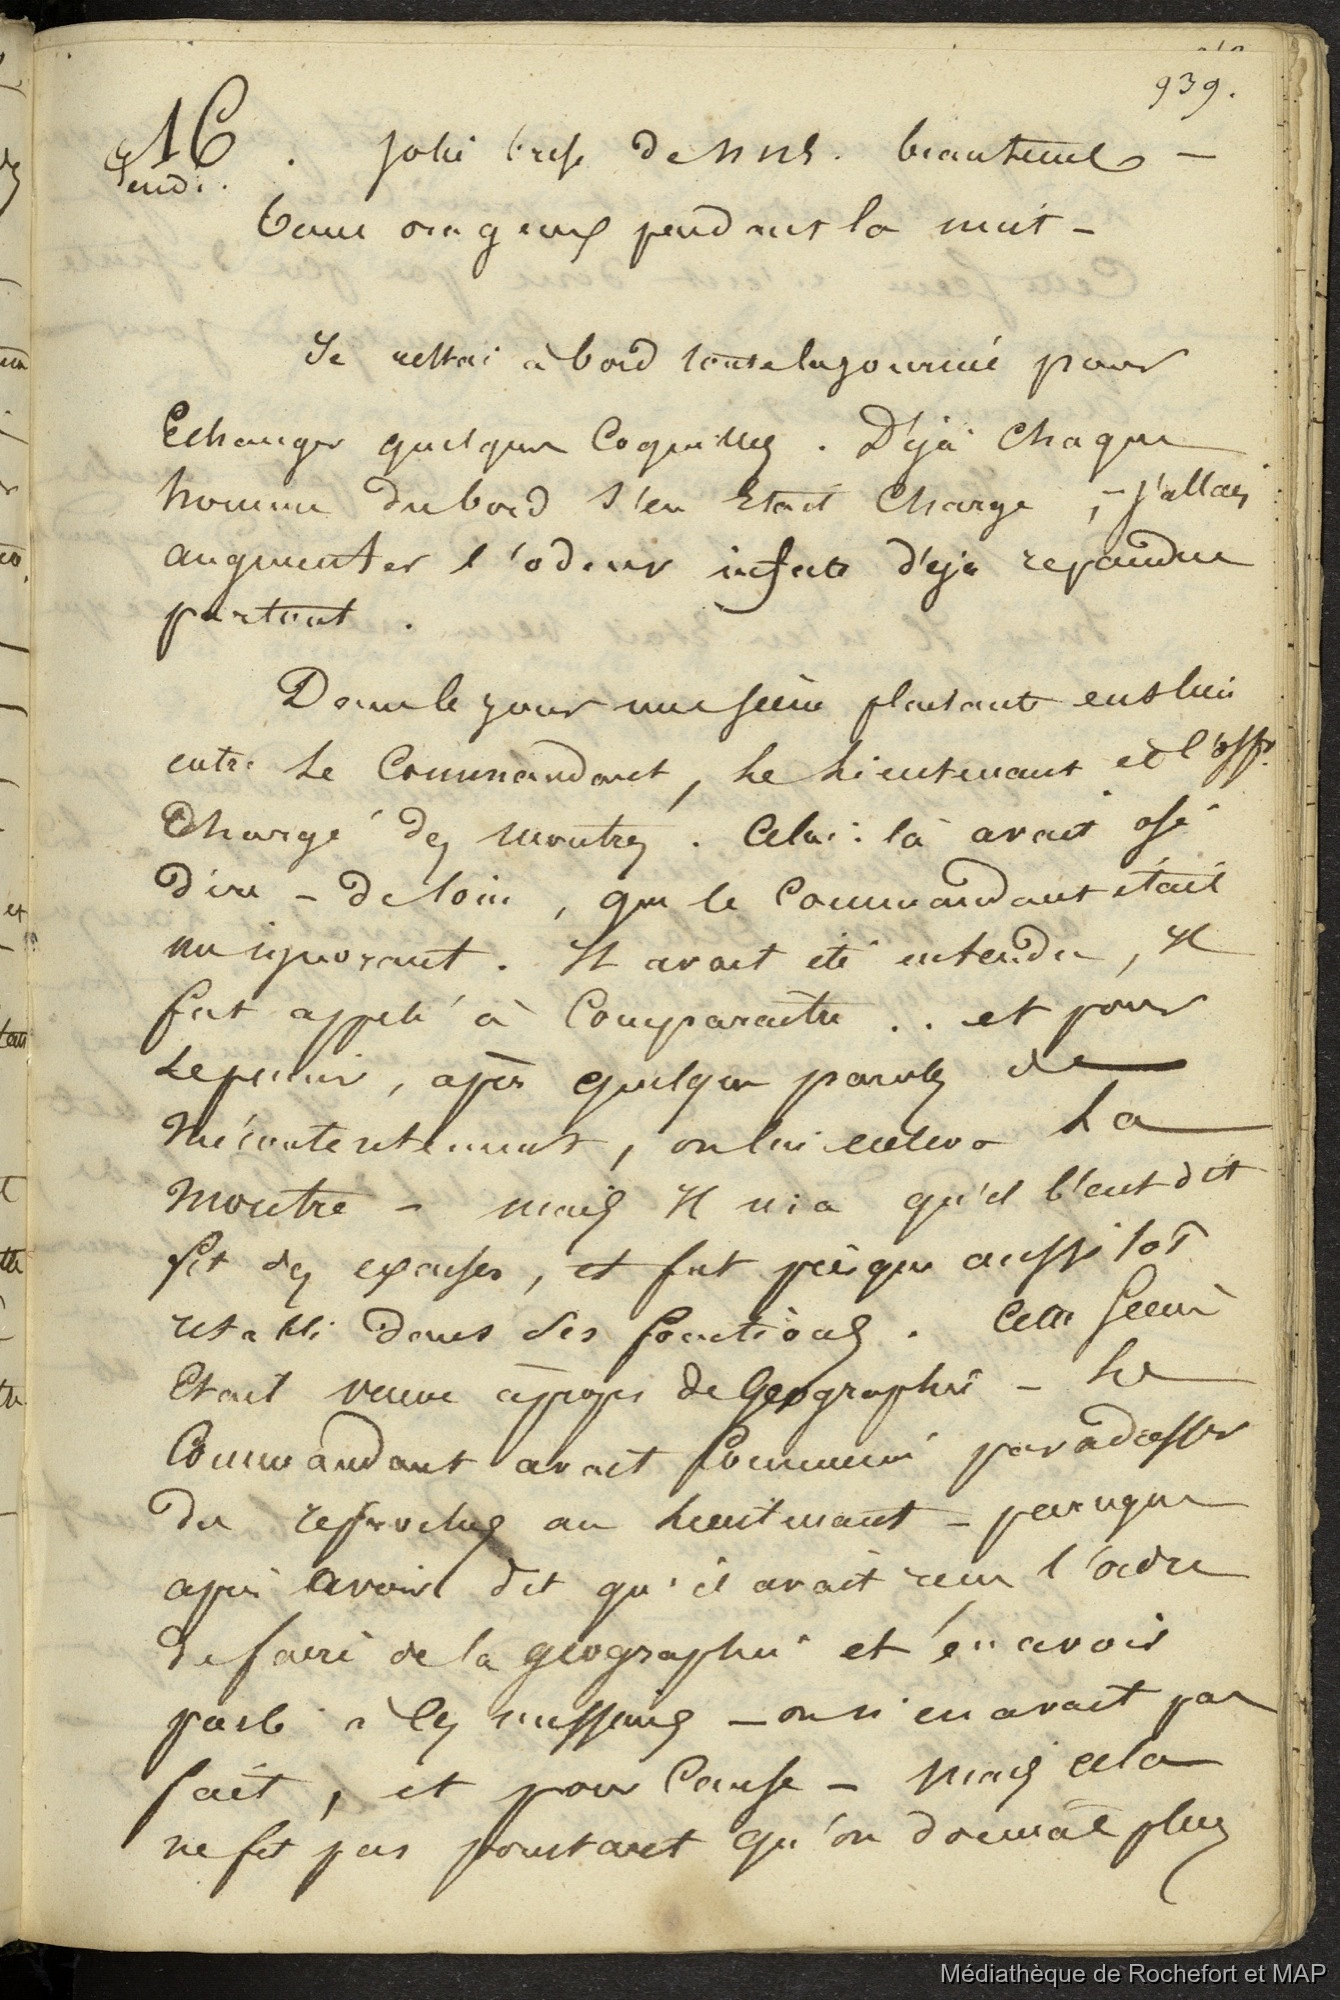 939.
16 . Jolie brise de NNE. beau temps —
Jeudi.
temps orageux pendant la nuit –
Je restai à bord toute la journée pour
Echanger quelques Coquilles . Déjà Chaque
homme du bord s'en Etait Chargé , – j'allais
augmenter l'odeur infecte déjà repandue
partout .
Dans le jour une scène plaisante eut lieu
entre Le Commandant, Le Lieutenant et l'offr.
Chargé des montres . Celui-là avait osé
dire – de loin , que le Commandant était
un ignorant . Il avait été entendu , Il
fut appelé à Comparaître . . et pour
Le punir , après quelques paroles de
mécontentement , on lui enleva La
montre – mais Il nia qu'il l'eut dit
fit des excuses , et fut presque aussitôt
retabli dans ses fonctions . Cette scène
Etait venue à propos de Géographie – Le
Commandant avait Commencé par adresser
des reproches au Lieutenant – parceque
après avoir dit qu'il avait reçu l'ordre
de faire de la géographie et en avoir
parlé à Ces messieurs – on n'en avait pas
fait , et pour Cause – mais cela
ne fit pas pourtant qu'on donnat plus
Médiathèque de Rochefort et MAP